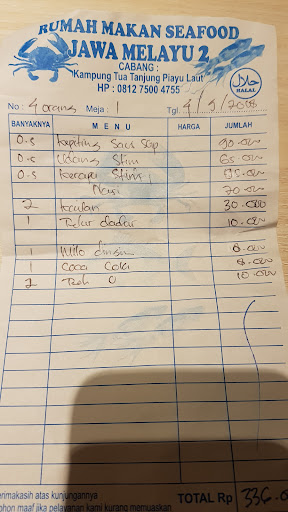 RUMAH MAKAN SEAFOOD
JAWA MELAYU 2
CABANG :
Kampung Tua Tanjung Piayu Laut
HP : 0812 7500 4755
HALAL
No : 4 orang Meja : 1 Tgl. 4/5/2018
BANYAKNYA M E N U HARGA JUMLAH
0.5 Kepiting Saus 90.000
0.5 Udang Stim 65.000
0.5 Kerapu Stim
Nasi 70.000
2 30.000
1 Telur dadar 10.000
1 Milo dingin 8.000
1 Coca Cola 8.000
2 Teh O 10.000
erimakasih atas kunjungannya
ohon maaf jika pelayanan kami kurang memuaskan
TOTAL Rp 336.0